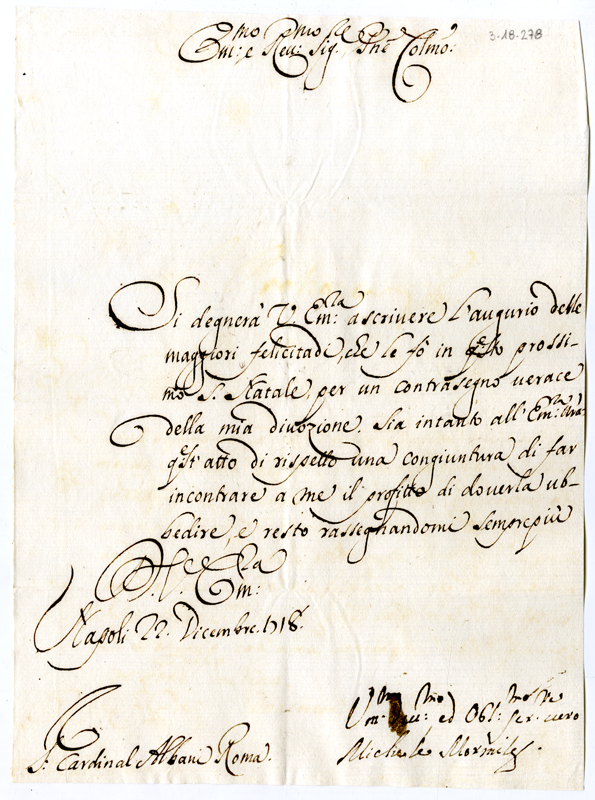 3-18-278
Em:mo e Rev:mo Sig:re Pne Colmo:
Si degnerà V. Em:za ascrivere l'augurio delle
maggiori felicitadi, che le fò in qsto prossi-
mo S. Natale, per un contrasegno verace
della mia divozione. Sia intanto all'Em:za Vra
qst'atto di rispetto una congiuntura di far
incontrare a me il profitto di doverla ub-
bedire, e resto rassegnandomi sempre più
Di V. Em:za
Napoli 22. Dicembre. 1718.
Um:mo Dev:mo ed Obl:mo Ser:re vero
Michele
S:r Cardinal Albani Roma.